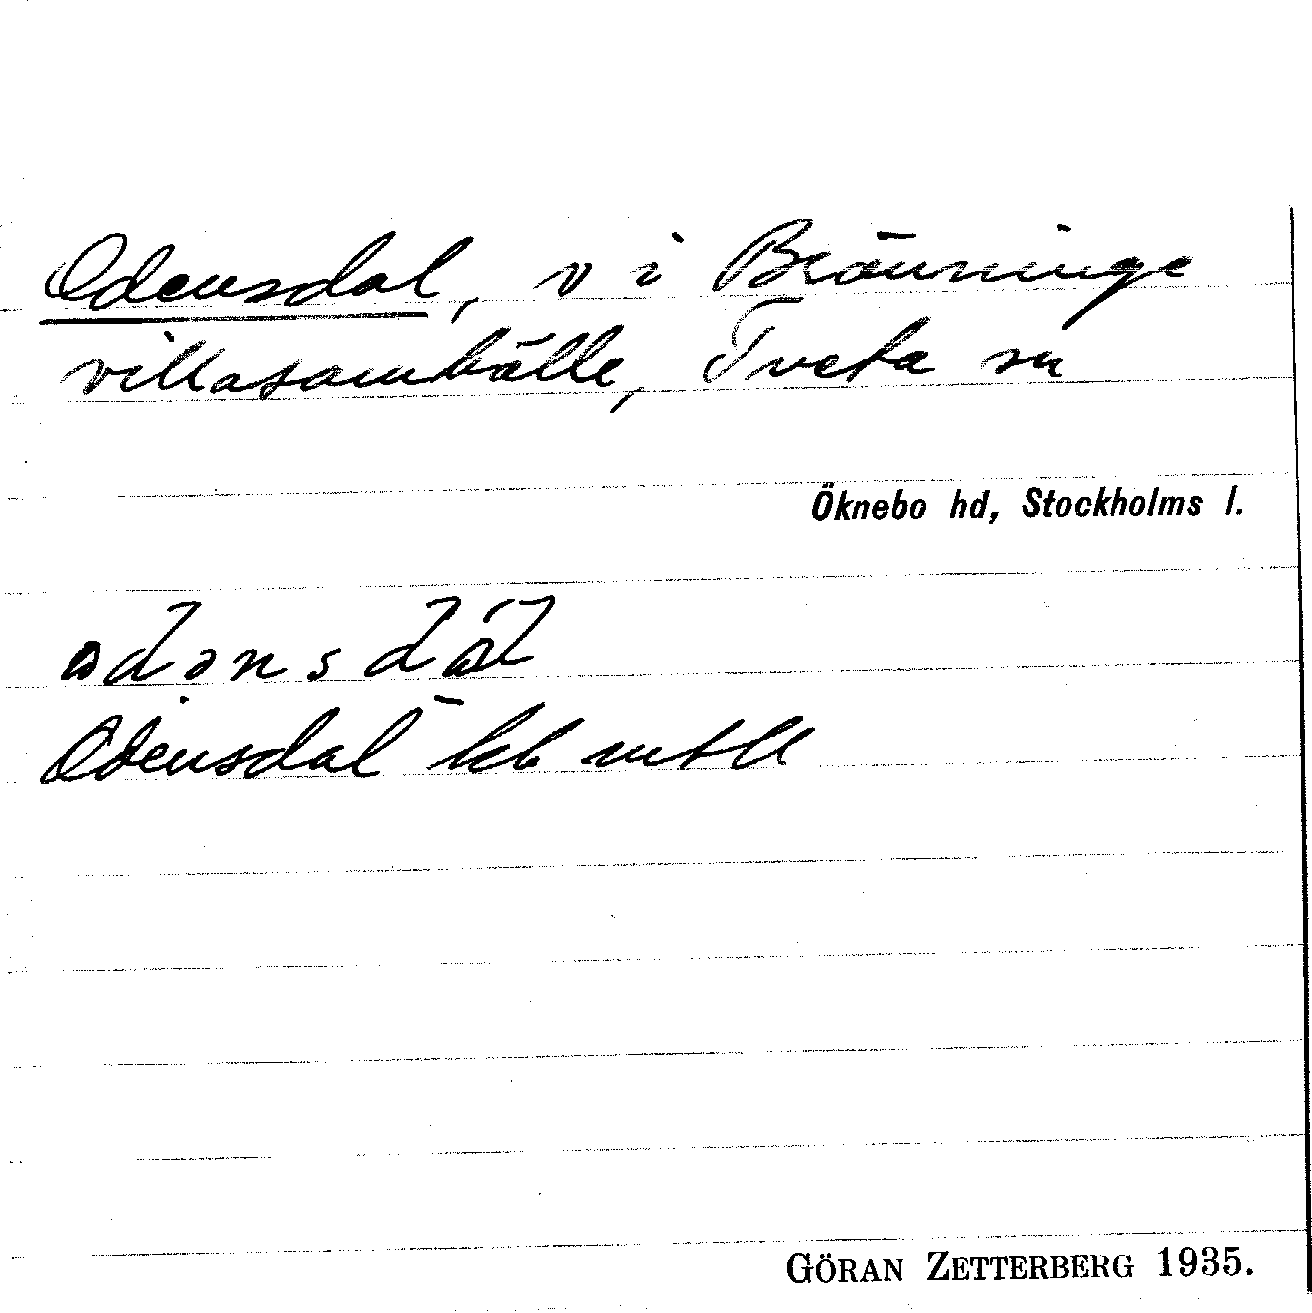 Odensdal, v i Bränninge
villasamhälle, Tveta sn
Öknebo hd, Stockholms l.
Odensdal
GÖRAN ZETTERBERG 1935.